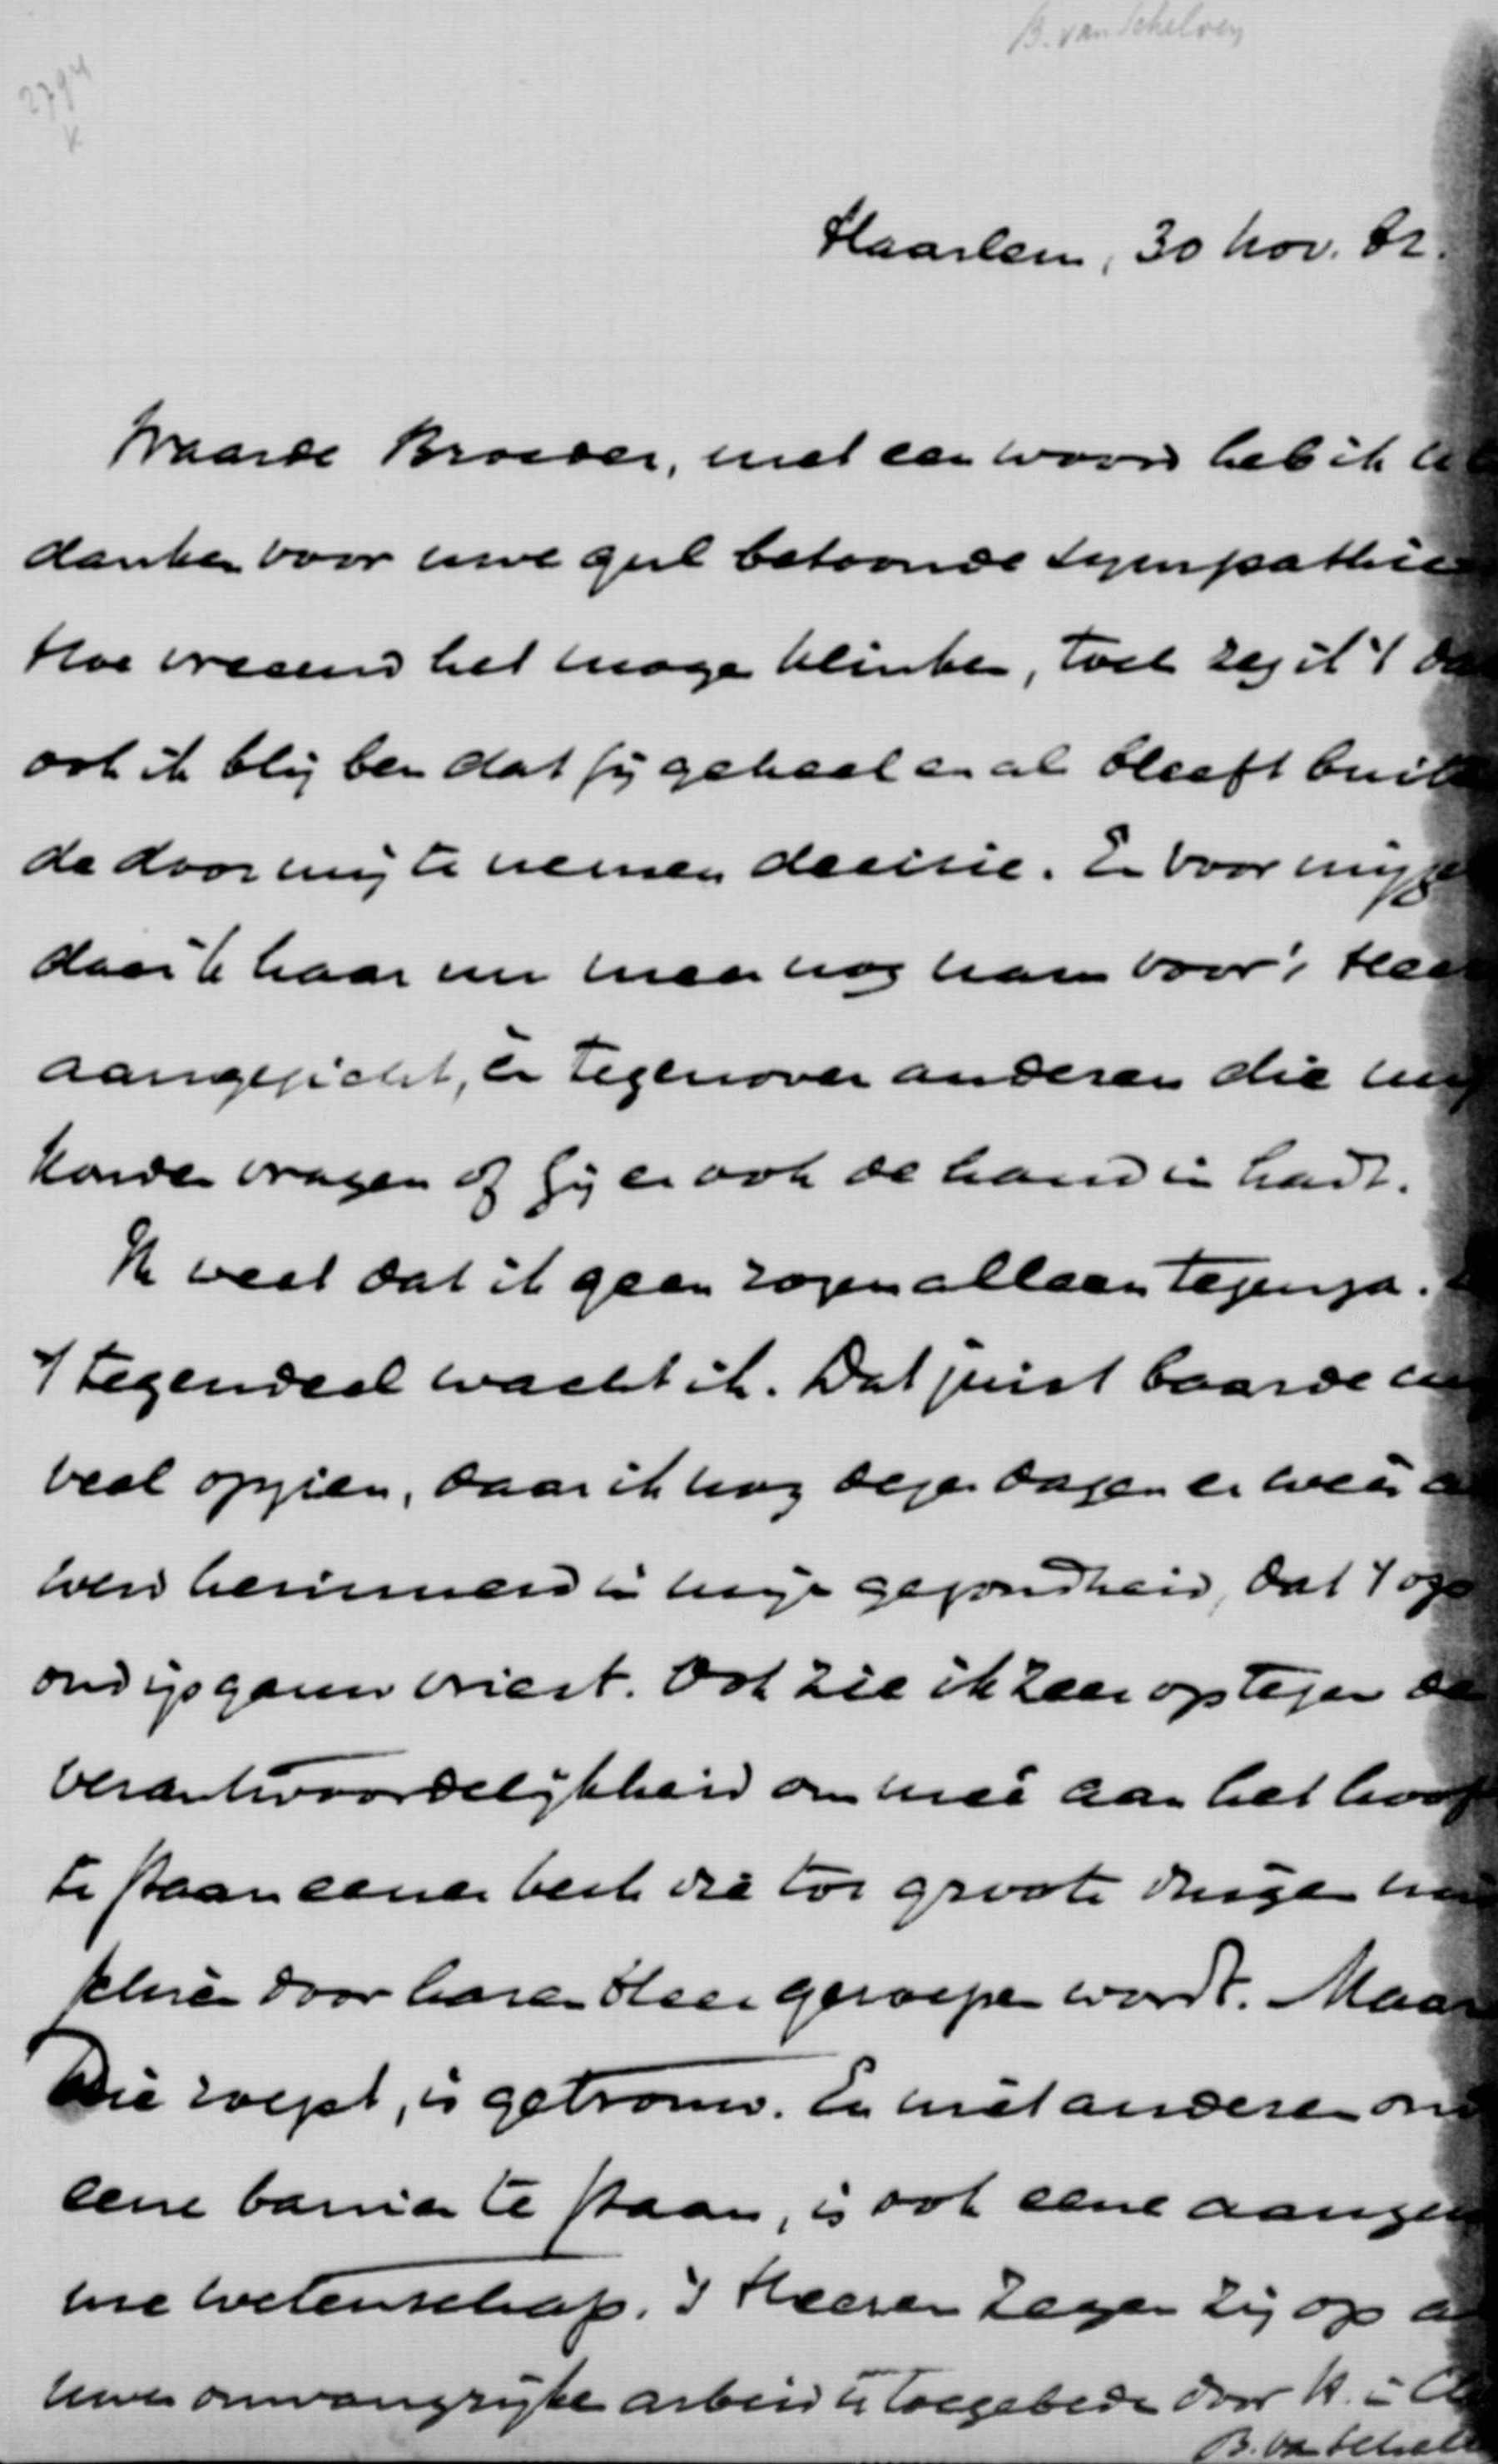 B. van Schelven
2794
K
Haarlem, 30 Nov. 82.
Waarde Broeder, met een woord heb ik U
danken voor uwe gul betoonde sympathie
Hoe vreemd het moge klinken, toch zeg ik 't
ook ik blij ben dat gij geheel en al bleeft buiten
de door mij te nemen decisie. En voor mij
daar ik haar nu maar nog nam voor 's Heeren
aangezicht, en tegenover anderen die mij
konden vragen of gij er ook de hand in hadt.
Ik weet dat ik geen rozen alleen tegenga.
't tegendeel wacht ik. Dat juist baarde mij
veel opzien, daar ik nog dezer dagen er weer
werd herinnerd in mijn gezondheid, dat 't
Ook zie ik zeer op tegen de
verantwoordelijkheid om mee aan het hoofd
te staan eener kerk die tot groote dingen
door haren Heer geroepen wordt. Maar
Die roept, is getrouw. En met anderen om
eene banier te staan, is ook eene aange
me wetenschap. 's Heeren zegen zij op
uwen omvangrijken arbeid U toegebeden door
B. van Schel